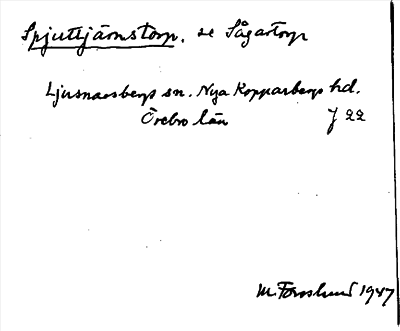 Spjuttjärnstorp, se Sågartorp
Ljusnarsbergs sn. Nya Kopparbergs hd.
Örebro län J 22
M. Forslund 1947